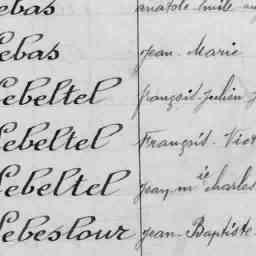 ebas anatole Emile
ebas Jean-Marie
ebeltel françois-Julien
ebeltel François-Vict
ebeltel Jean-M ie charles
ebeslour Jean-Baptiste